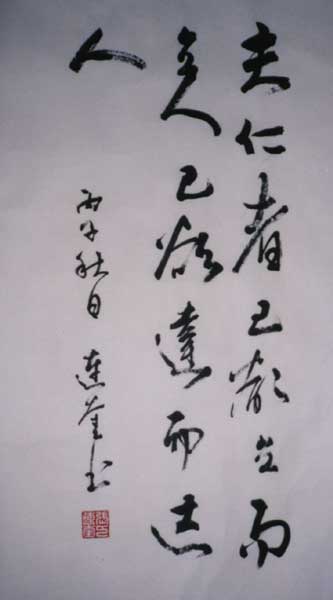 夫仁者己欲立而
立人己欲達而达
人
丙子秋日 連奎书